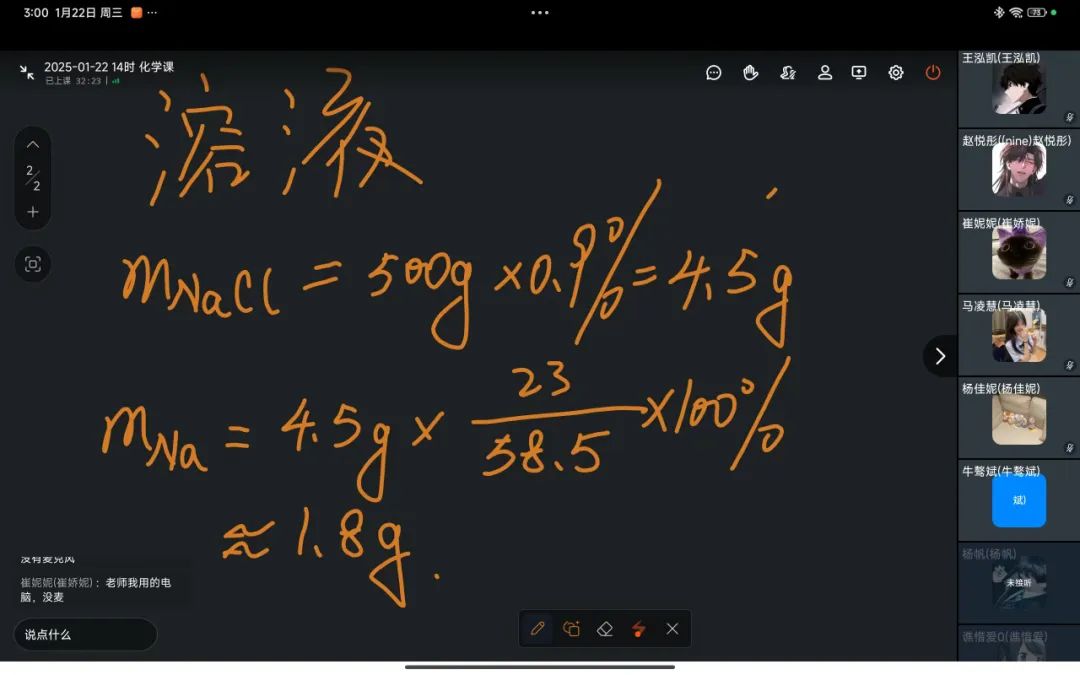 3:00 1月22日 周三 ...
73
2025-01-22 14时 化学课
已上课 32:23
2/2
溶液
mNaCl = 500g × 0.9% = 4.5g
mNa = 4.5g × 23/58.5 × 100%
≈ 1.8g.
没有麦克风
崔妮妮(崔娇妮)：老师我用的电
脑，没麦
说点什么
王泓凯(王泓凯)
赵悦彤((nine)赵悦彤)
崔妮妮(崔娇妮)
马凌慧(马凌慧)
杨佳妮(杨佳妮)
牛骜斌(牛骜斌)
斌)
杨帆(杨帆)
未接听
谯惜爱0(谯惜爱)